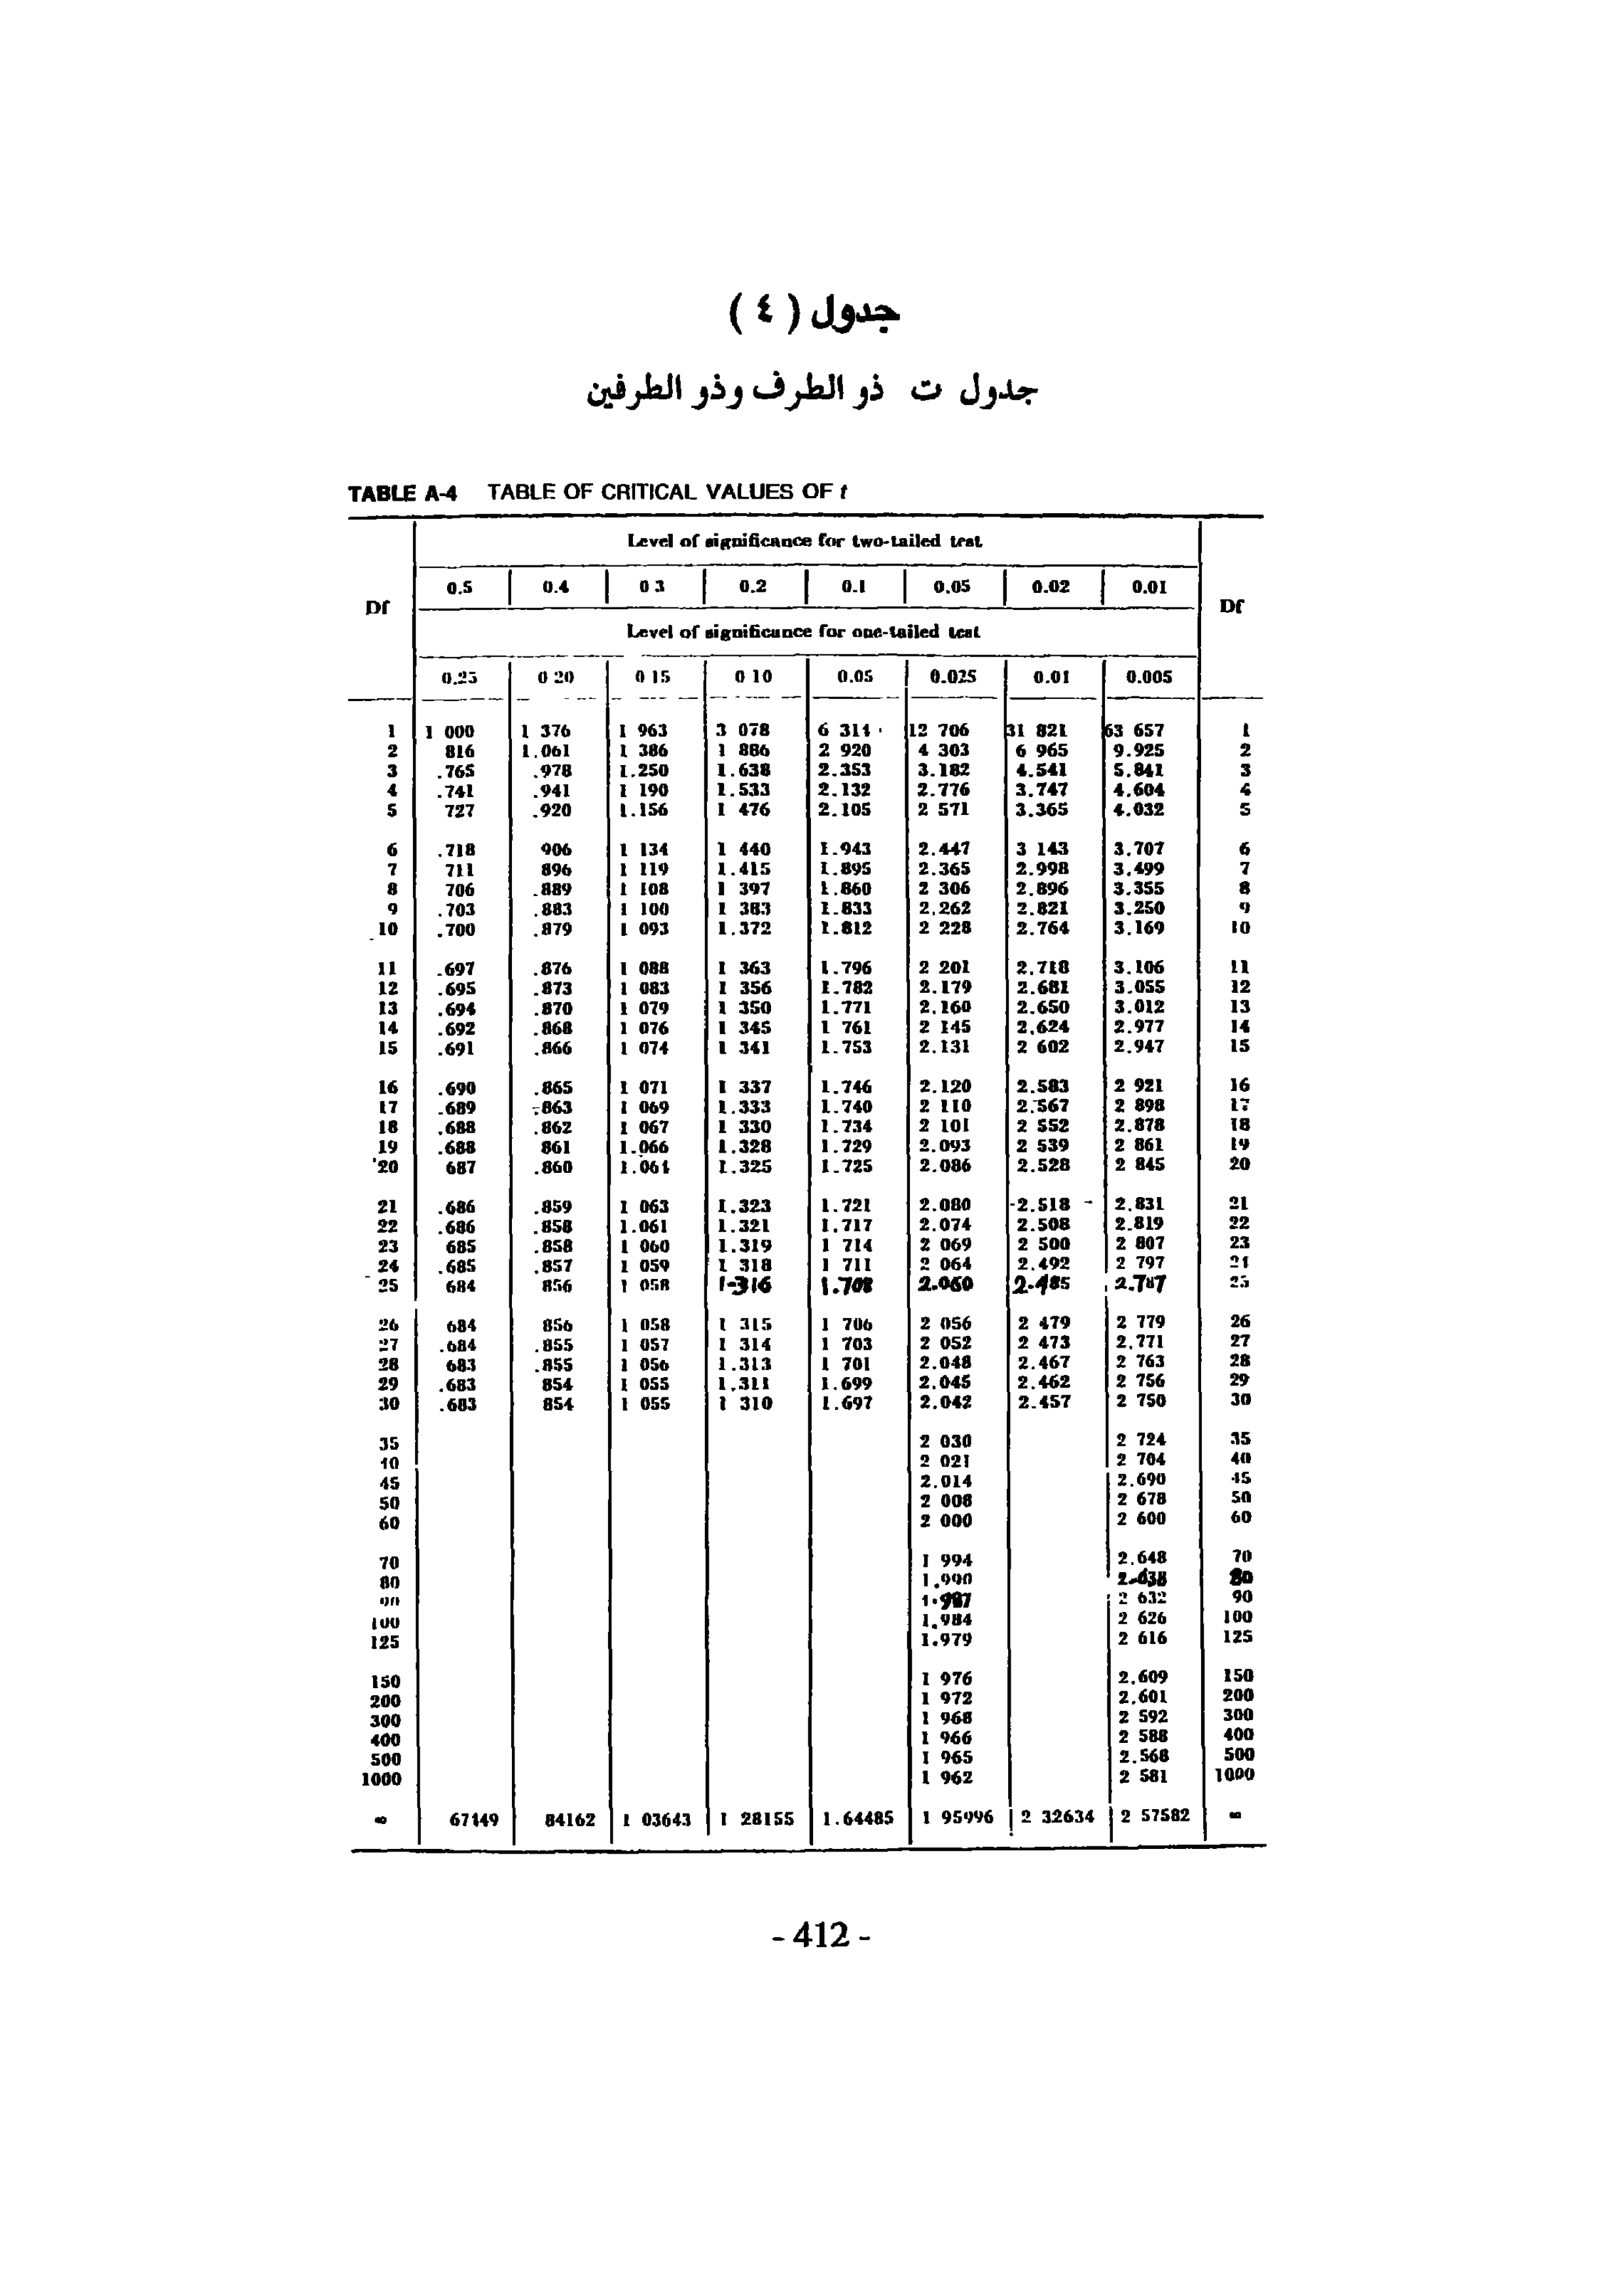 جدول ( ٤ )
جدول ت ذو الطرف وذو الطرفين
TABLE A-4 TABLE OF CRITICAL VALUES OF t
Level of significance for two-tailed test
Df 0.5 0.4 0 3 0.2 0.1 0.05 0.02 0.01 Df
Level of significance for one-tailed test
0.25 0 20 0 15 0 10 0.05 0.025 0.01 0.005
1 1 000 1 376 1 963 3 078 6 314 12 706 31 821 63 657 1
2 816 1.061 1 386 1 886 2 920 4 303 6 965 9.925 2
3 .765 .978 1.250 1.638 2.353 3.182 4.541 5.841 3
4 .741 .941 1 190 1.533 2.132 2.776 3.747 4.604 4
5 727 .920 1.156 1 476 2.105 2 571 3.365 4.032 5
6 .718 906 1 134 1 440 1.943 2.447 3 143 3.707 6
7 711 896 1 119 1.415 1.895 2.365 2.998 3.499 7
8 706 .889 1 108 1 397 1.860 2 306 2.896 3.355 8
9 .703 .883 1 100 1 383 1.833 2.262 2.821 3.250 9
10 .700 .879 1 093 1.372 1.812 2 228 2.764 3.169 10
11 .697 .876 1 088 1 363 1.796 2 201 2.718 3.106 11
12 .695 .873 1 083 1 356 1.782 2.179 2.681 3.055 12
13 .694 .870 1 079 1 350 1.771 2.160 2.650 3.012 13
14 .692 .868 1 076 1 345 1 761 2 145 2.624 2.977 14
15 .691 .866 1 074 1 341 1.753 2.131 2 602 2.947 15
16 .690 .865 1 071 1 337 1.746 2.120 2.583 2 921 16
17 .689 .863 1 069 1.333 1.740 2 110 2.567 2 898 17
18 .688 .862 1 067 1 330 1.734 2 101 2 552 2.878 18
19 .688 861 1.066 1.328 1.729 2.093 2 539 2 861 19
20 687 .860 1.064 1.325 1.725 2.086 2.528 2 845 20
21 .686 .859 1 063 1.323 1.721 2.080 2.518 2.831 21
22 .686 .858 1.061 1.321 1.717 2.074 2.508 2.819 22
23 685 .858 1 060 1.319 1 714 2 069 2 500 2 807 23
24 .685 .857 1 059 1 318 1 711 2 064 2.492 2 797 24
25 684 856 1 058 1-316 1.708 2.060 2.485 2.787 25
26 684 856 1 058 1 315 1 706 2 056 2 479 2 779 26
27 .684 .855 1 057 1 314 1 703 2 052 2 473 2.771 27
28 683 .855 1 056 1.313 1 701 2.048 2.467 2 763 28
29 .683 854 1 055 1.311 1.699 2.045 2.462 2 756 29
30 .683 854 1 055 1 310 1.697 2.042 2.457 2 750 30
35 2 030 2 724 35
40 2 021 2 704 40
45 2.014 2.690 45
50 2 008 2 678 50
60 2 000 2 600 60
70 1 994 2.648 70
80 1.990 2.638 80
90 1.987 2 632 90
100 1.984 2 626 100
125 1.979 2 616 125
150 1 976 2.609 150
200 1 972 2.601 200
300 1 968 2 592 300
400 1 966 2 588 400
500 1 965 2.568 500
1000 1 962 2 581 1000
∞ 67449 84162 1 03643 1 28155 1.64485 1 95996 2 32634 2 57582 ∞
- 412 -